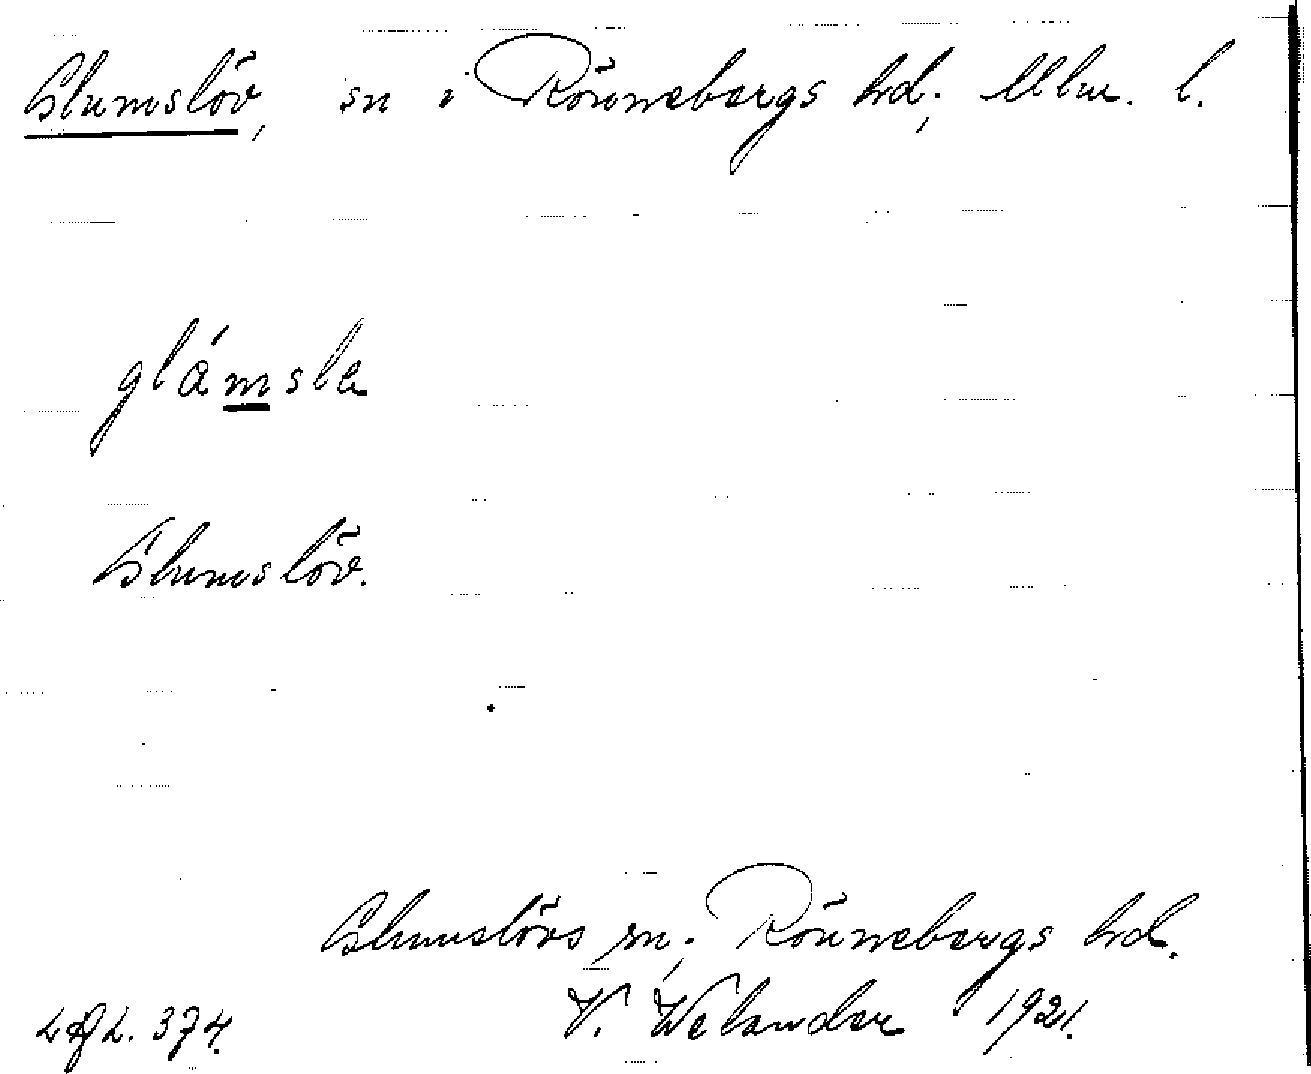 Glumslöv, sn i Rönnebergs hd; Mlm. l.
glámsla
Glumslöv.
Glumslövs sn; Rönnebergs hd.
V. Welander 1921.
374.